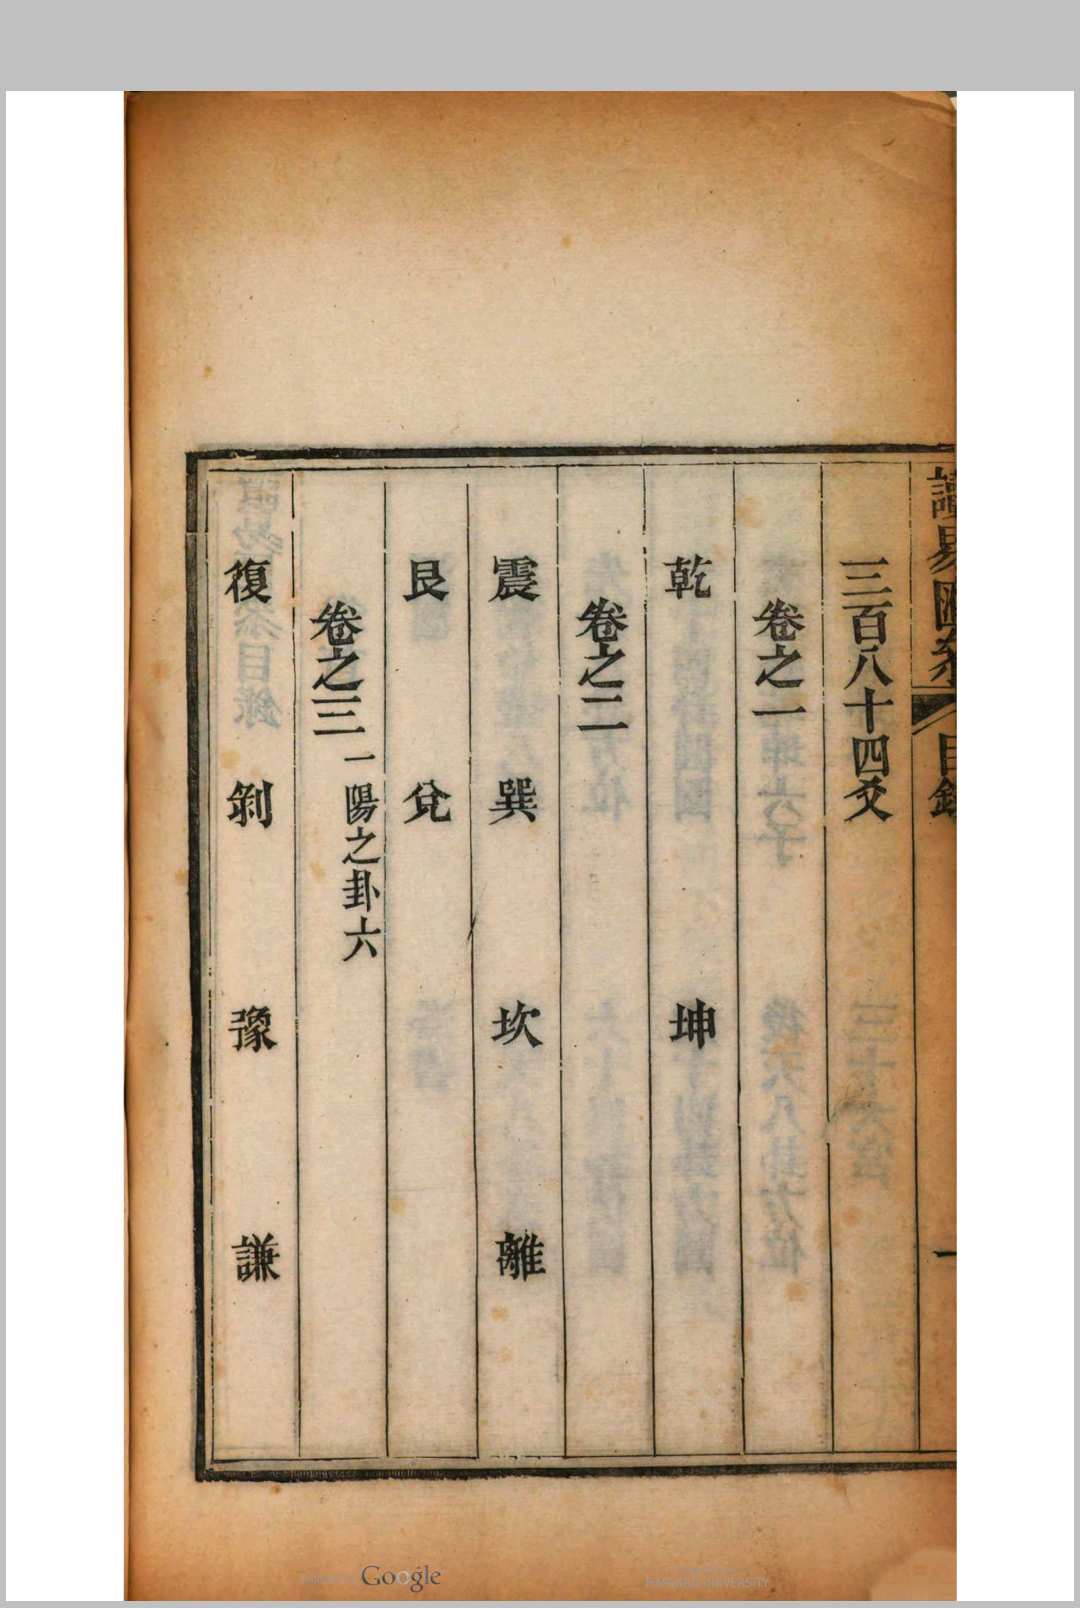 讀易匯參 目錄 一
三百八十四爻
卷之一
乾 坤
卷之二
震 巽 坎 離
艮 兌
卷之三 一陽之卦六
復 剝 豫 謙
Google
HARVARD UNIVERSITY